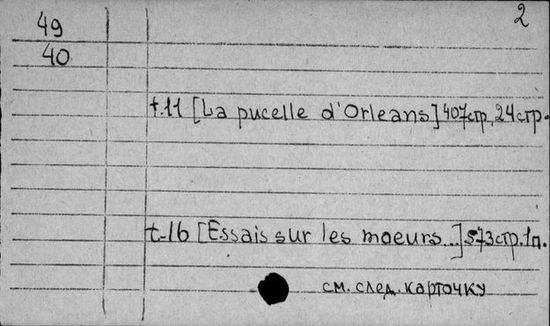 2
49
40
t.11 [La pucelle d'Orleans] 407стр, 24стр.
t.16 [Essais sur les moeurs...] 573стр. 1л.
см. след. карточку